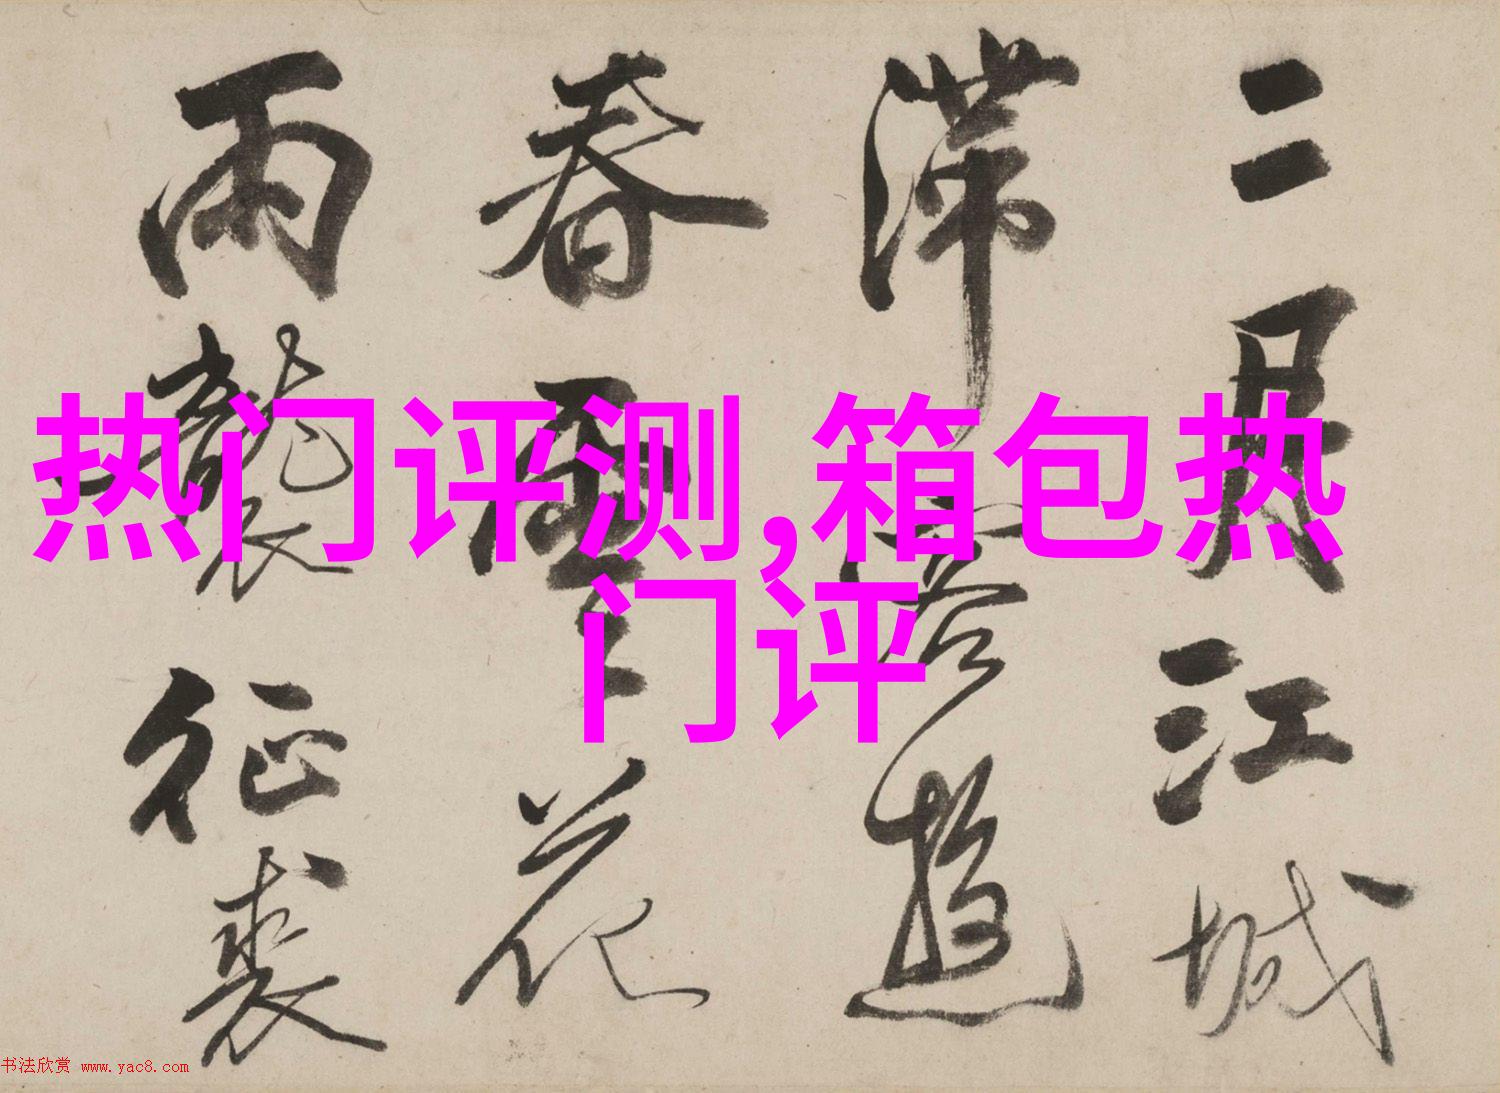 二月江城
滞客游
春雪花
雨袭征裘
热门评测,箱包热
门评
书法欣赏 www.yac8.com